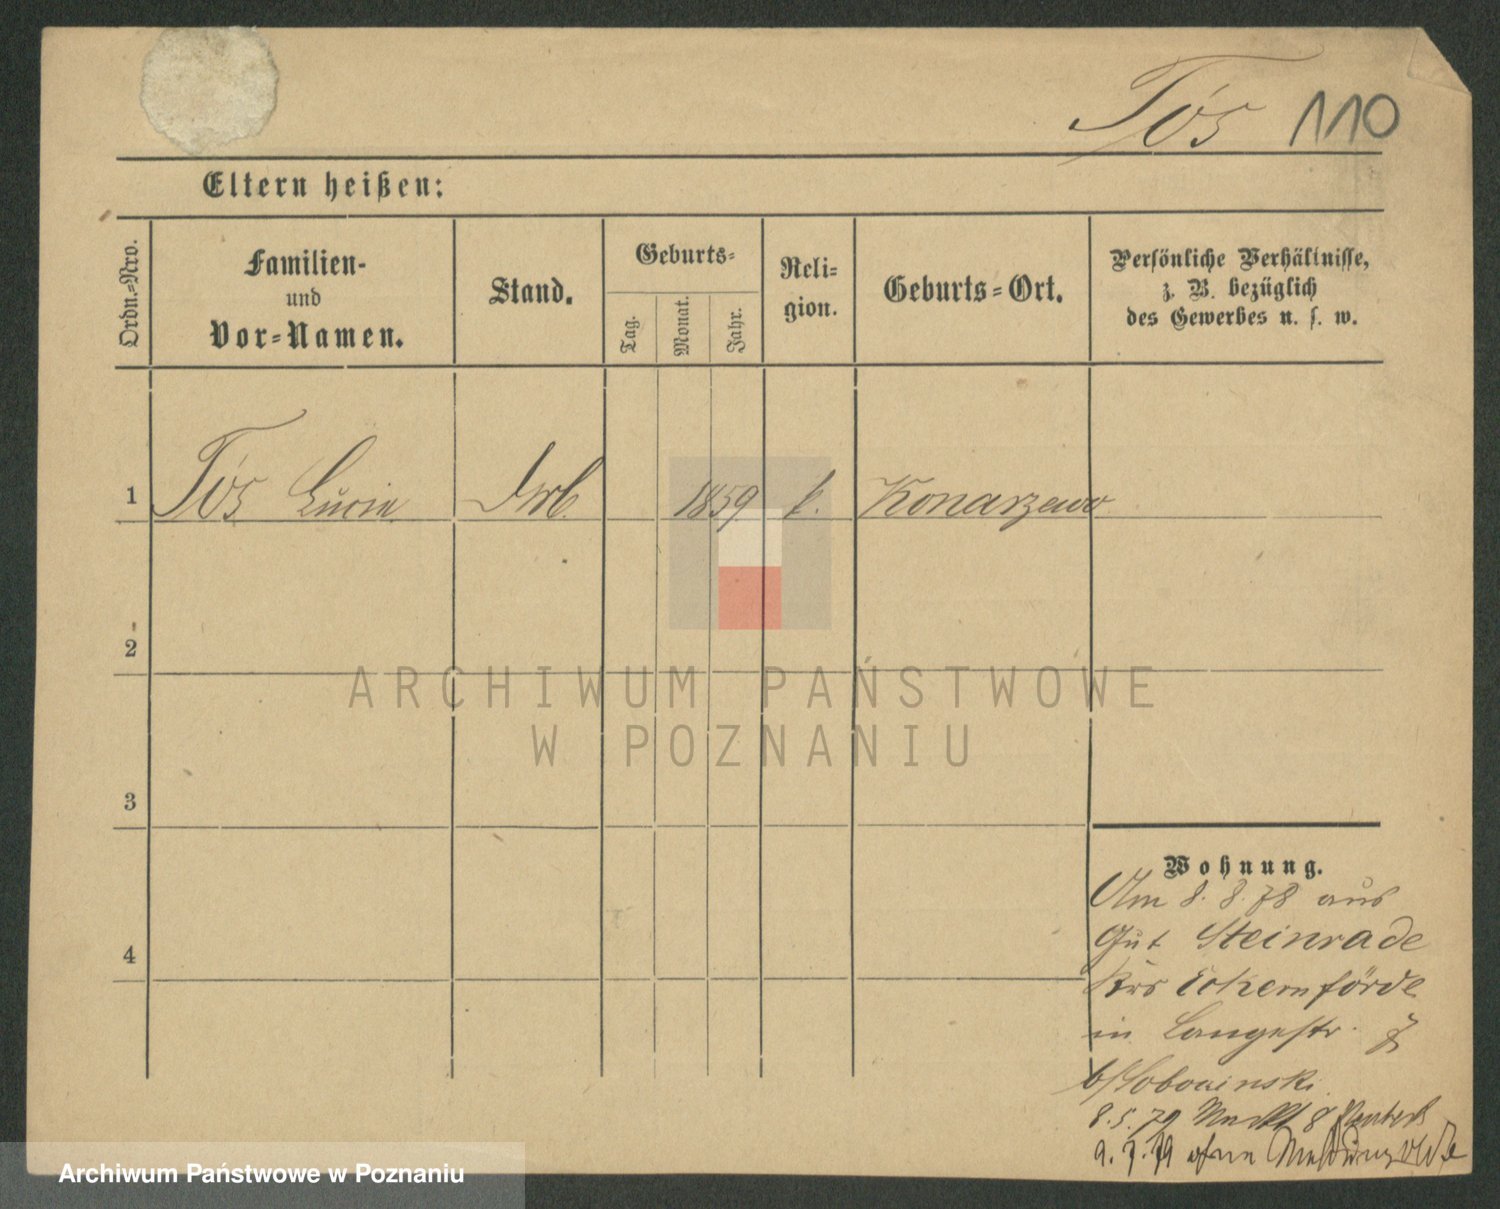 Tós 110
Eltern heißen:
Ordn.-Nro.
Familien-
und
Vor-Namen.
Stand.
Geburts-
Tag.
Monat.
Jahr.
Reli-
gion.
Geburts-Ort.
Persönliche Verhältnisse,
z. B. bezüglich
des Gewerbes u. s. w.
1 Tós Lucia 1859 k. Konarzewo
2
ARCHIWUM PAŃSTWOWE
W POZNANIU
3
Wohnung.
Am 8. 8. 78 aus
Gut Steinrade
Krs Eckernförde
in Langestr. 7
b/Sobocinski
8. 5. 79 Markt 8
4
9. 7. 79 ohne Meldung
Archiwum Państwowe w Poznaniu